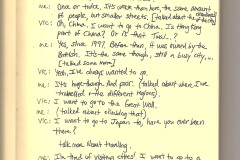 me: Once or twice. It's more than here, the same amount
of people, but smaller streets. [talked about the
Vic: Oh, China. I want to go to China. Is Hong Kong
part of China? Or is that
me: Yes, since 1997. Before then, it was owned by the
British. It's the same though, still a busy city...
[talked some more]
Vic: Yeah, I've always wanted to go.
me: It's huge though. And poor. (talked about where I've
travelled - the different regions)
Vic: I want to go to the Great Wall.
me: (talked about climbing that)
Vic: I want to go to Japan to, have you ever been
there?
talk more about travelling
Vic: I'm tired of visiting cities! I want to go to a